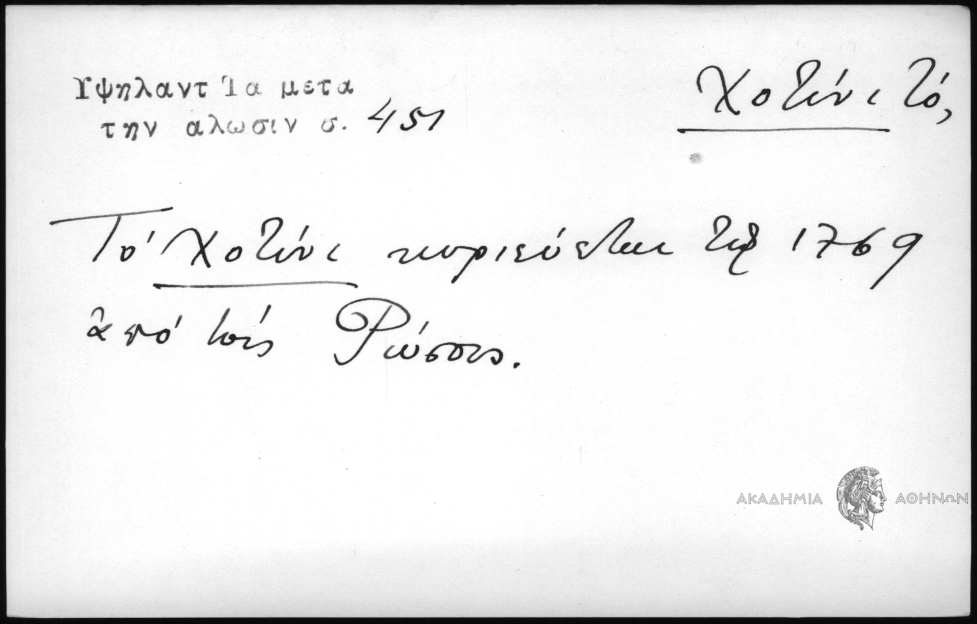 Υψηλαντ Ία μετα
την αλωσιν σ. 451
Χοτίνι τό,
Τό Χοτίνι κυριεύεται τῷ 1769
ἀπό τούς Ρώσους.
ΑΚΑΔΗΜΙΑ ΑΘΗΝΩΝ